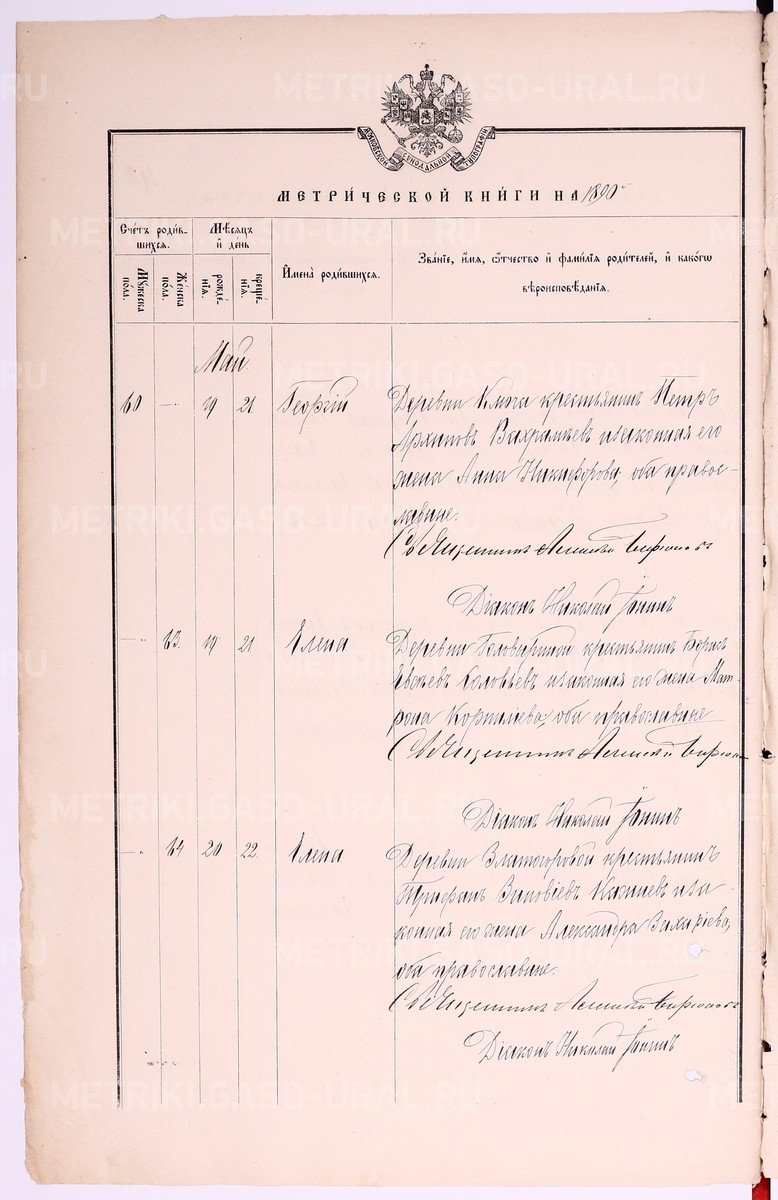 МЕТРИЧЕСКОЙ КНИГИ НА 1890
Счетъ родив-
шихся.
Мѣсяцъ
и день
Мужеска
пола.
Женска
пола.
рожде-
нія.
креще-
нія.
Имена родившихся.
Званіе, имя, отчество и фамилія родителей, и какогѡ
вѣроисповѣданія.
Май
60 — 19 21 Георгій Деревни крестьянинъ Петръ
Архиповъ Вахрамѣевъ и законная его
жена Анна Никифорова, оба право-
славные.
Священникъ Бирюковъ
Діаконъ Николай
— 63. 19 21 Елена Деревни Головыриной крестьянинъ Борисъ
Соловьевъ и законная его жена Мат-
рона Корнилаева, оба православные.
Священникъ
Діаконъ Николай
— 64 20 22. Елена Деревни Златогоровой крестьянинъ
Зиновіевъ и за-
конная его жена Александра Захаріева,
оба православные.
Священникъ Бирюковъ
Діаконъ Николай
METRIKI.GASO-URAL.RU